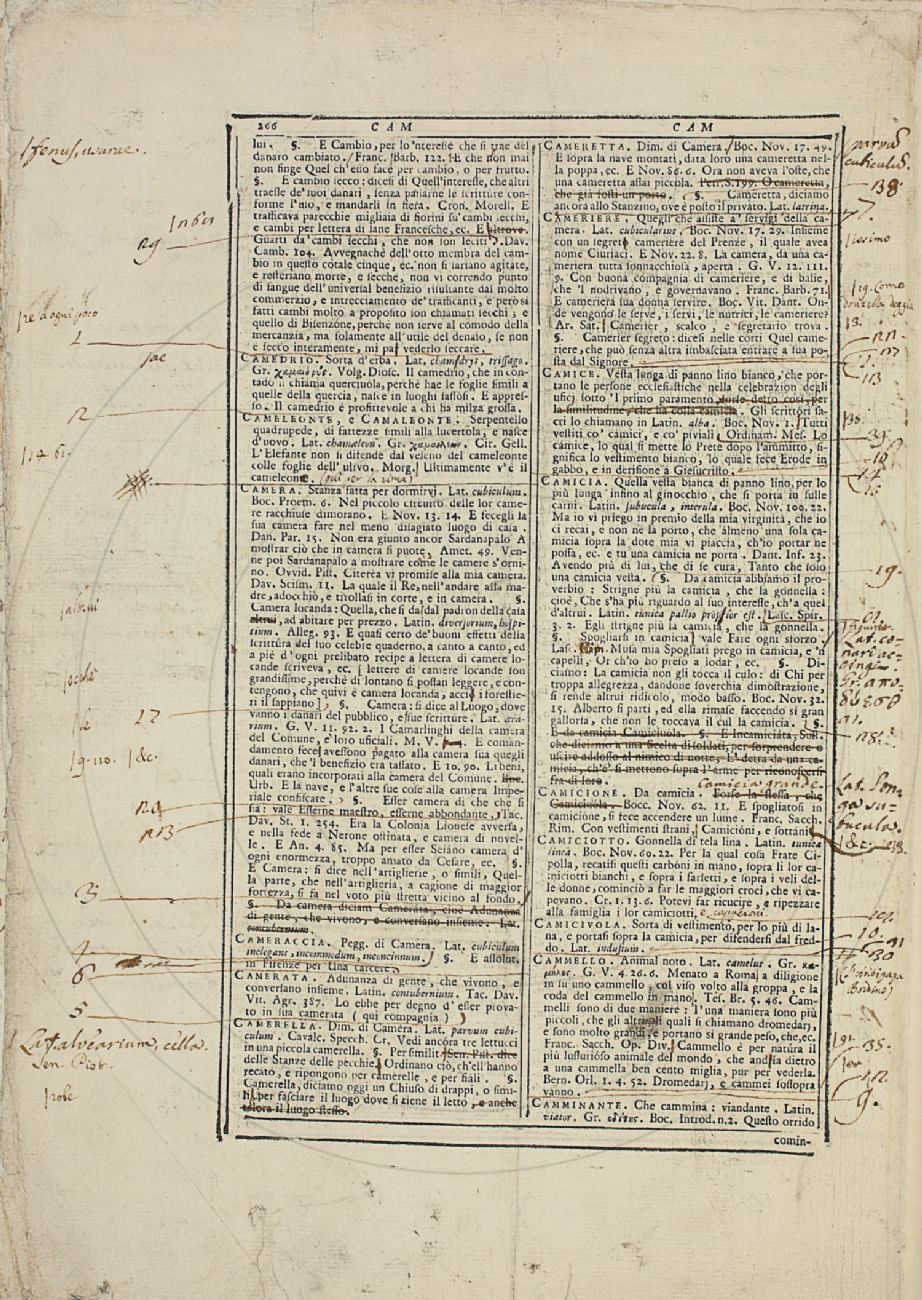 266 CAM
lui. §. E Cambio, per lo 'nteresse che si trae del
danaro cambiato. Franc. Barb. 122. E che non mai
non finge Quel ch'esso face per cambio, o per frutto.
§. E cambio secco: dicesi di Quell'interesse, che altri
traesse de' suoi danari, senza passarne le scritture con-
forme l'uso, e mandarli in fiera. Cron. Morell. E
trafficava parecchie migliaia di fiorini su' cambi secchi,
e cambi per lettera di lane Francesche, ec. E altrove.
Guarti da' cambi secchi, che non son leciti. Dav.
Camb. 104. Avvegnachè dell'otto membra del cam-
bio in questo cotale cinque, ec. non si sariano agitate,
e resteriano morte, e secche, non vi correndo punto
di sangue dell'universal benefizio risultante dal molto
commerzio, e intrecciamento de' trafficanti, e però si
fatti cambi molto a proposito son chiamati secchi; e
quello di Bisenzone, perchè non serve al comodo della
mercanzia, ma solamente all'utile del denaio, se non
è secco interamente, mi par vederlo seccare.
CAMEDRIO. Sorta d'erba. Lat. chamædrys, trissago.
Gr. χαμαίδρυς. Volg. Diosc. Il camedrio, che in con-
tado si chiama querciuola, perchè hae le foglie simili a
quelle della quercia, nasce in luoghi sassosi. E appres-
so. Il camedrio è profittevole a chi ha milza grossa.
CAMELEONTE, e CAMALEONTE. Serpentello
quadrupede, di fattezze simili alla lucertola, e nasce
d'uovo. Lat. chameleon. Gr. χαμαιλέων. Cit. Gell.
L'Elefante non si difende dal veleno del cameleonte
colle foglie dell'ulivo. Morg. Ultimamente v'è il
cameleone. (qui per la rima)
CAMERA. Stanza fatta per dormirvi. Lat. cubiculum.
Boc. Proem. 6. Nel piccolo circuito delle lor came-
re racchiuse dimorano. E Nov. 13. 14. E fecegli la
sua camera fare nel meno disagiato luogo di casa.
Dan. Par. 15. Non era giunto ancor Sardanapalo A
mostrar ciò che in camera si puote. Amet. 49. Ven-
ne poi Sardanapalo a mostrare come le camere s'orni-
no. Ovvid. Pist. Citerea vi promise alla mia camera.
Dav. Scism. 11. La quale il Re, nell'andare alla ma-
dre, adocchiò, e tirollasi in corte, e in camera. §.
Camera locanda: Quella, che si dà dal padron della casa
altrui, ad abitare per prezzo. Latin. diversorium, hospi-
tium. Alleg. 93. E quasi certo de' buoni effetti della
scrittura del suo celebre quaderno, a canto a canto, ed
a piè d'ogni prelibato recipe a lettera di camere lo-
cande scriveva, ec. lettere di camere locande son
grandissime, perchè di lontano si possan leggere, e con-
tengono, che quivi è camera locanda, acciò i forestie-
ri il sappiano. §. Camera: si dice al Luogo, dove
vanno i danari del pubblico, e sue scritture. Lat. æra-
rium. G. V. 11. 92. 2. I Camarlinghi della camera
del Comune, e loro uficiali. M. V. E coman-
damento fece avessono pagato alla camera sua quegli
danari, che 'l benefizio era tassato. E 10. 90. Liberi,
quali erano incorporati alla camera del Comune. Boc.
Urb. E la nave, e l'altre sue cose alla camera Impe-
riale confiscate. §. Esser camera di che che si
sia: vale Esserne maestro, esserne abbondante. Tac.
Dav. St. 1. 254. Era la Colonia Lionese avversa,
e nella fede a Nerone ostinata, e camera di novel-
le. E An. 4. 85. Ma per esser Seiano camera d'
ogni enormezza, troppo amato da Cesare, ec. §.
E Camera: si dice nell'artiglierie, o simili, Quel-
la parte, che nell'artiglieria, a cagione di maggior
fortezza, si fa nel voto più stretta vicino al fondo.
§. Da camera diciam Camerata, cioè Adunanza
di gente, che vivono, e conversano insieme. Lat.
contubernium.
CAMERACCIA. Pegg. di Camera. Lat. cubiculum
inelegans, incommodum, inconcinnum. §. E assolut.
in Firenze per Una carcere.
CAMERATA. Adunanza di gente, che vivono, e
conversano insieme. Latin. contubernium. Tac. Dav.
Vit. Agr. 387. Lo ebbe per degno d'esser prova-
to in sua camerata (qui compagnia)
CAMERELLA. Dim. di Camera. Lat. parvum cubi-
culum. Cavalc. Specch. Cr. Vedi ancora tre lettucci
in una piccola camerella. §. Per similit. Sen. Pist. dice
delle Stanze delle pecchie. Ordinano ciò, ch'ell'hanno
recato, e ripongono per camerelle, e per fiali. §.
Camerella, diciamo oggi un Chiuso di drappi, o simi-
li, per fasciare il luogo dove si tiene il letto, e anche
talora il luogo stesso.
CAM
CAMERETTA. Dim. di Camera. Boc. Nov. 17. 49.
E sopra la nave montati, data loro una cameretta nel-
la poppa, ec. E Nov. 86. 6. Ora non aveva l'oste, che
una cameretta assai piccola. Petr. S. 199. O cameretta,
che già fosti un porto. §. Cameretta, diciamo
ancora allo Stanzino, ove è posto il privato. Lat. latrina.
CAMERIERE. Quegli che assiste a' servigi della ca-
mera. Lat. cubicularius. Boc. Nov. 17. 29. Insieme
con un segreto cameriere del Prenze, il quale avea
nome Ciuriaci. E Nov. 22. 8. La camera, da una ca-
meriera tutta sonnacchiosa, aperta. G. V. 12. 111.
9. Con buona compagnia di cameriere, e di balie,
che 'l nodrivano, e governavano. Franc. Barb. 71.
E cameriera sua donna servire. Boc. Vit. Dant. On-
de vengono le serve, i servi, le nutrici, le cameriere?
Ar. Sat. Camerier, scalco, e segretario trova.
§. Camerier segreto: dicesi nelle corti Quel came-
riere, che può senza altra imbasciata entrare a sua po-
sta dal Signore.
CAMICE. Vesta lunga di panno lino bianco, che por-
tano le persone ecclesiastiche nella celebrazion degli
ufici sotto 'l primo paramento, forse detto così, per
la similitudine, che ha colla camicia. Gli scrittori sa-
cri lo chiamano in Latin. alba. Boc. Nov. 1. Tutti
vestiti co' camici, e co' piviali. Ordinam. Mes. Lo
camice, lo qual si mette lo Prete dopo l'ammitto, si-
gnifica lo vestimento bianco, lo quale fece Erode in
gabbo, e in derisione a Giesucristo.
CAMICIA. Quella vesta bianca di panno lino, per lo
più lunga infino al ginocchio, che si porta in sulle
carni. Latin. subucula, interula. Boc. Nov. 100. 22.
Ma io vi priego in premio della mia virginità, che io
ci recai, e non ne la porto, che almeno una sola ca-
micia sopra la dote mia vi piaccia, ch'io portar ne
possa, ec. e tu una camicia ne porta. Dant. Inf. 23.
Avendo più di lui, che di se cura, Tanto che solo
una camicia vesta. §. Da camicia abbiamo il pro-
verbio: Strigne più la camicia, che la gonnella:
cioè, Che s'ha più riguardo al suo interesse, ch'a quel
d'altrui. Latin. tunica pallio propior est. Lasc. Spir.
3. 2. Egli strigne più la camicia, che la gonnella.
§. Spogliarsi in camicia vale Fare ogni sforzo.
Las. Rim. Musa mia Spogliati prego in camicia, e 'n
capelli, Or ch'io ho preso a lodar, ec. §. Di-
ciamo: La camicia non gli tocca il culo: di Chi per
troppa allegrezza, dandone soverchia dimostrazione,
si rende altrui ridicolo, modo basso. Boc. Nov. 32.
15. Alberto si partì, ed ella rimase faccendo sì gran
galloria, che non le toccava il cul la camicia. §.
E da camicia Camiciuola. §. E Incamiciata, Sust.
che diciamo a una Scelta di soldati, per sorprendere o
uscire addosso al nimico di notte, E' detta da una ca-
micia, ch'e' si mettono sopra l'arme per riconoscersi
fra di loro. Camicia grande.
CAMICIONE. Da camicia. Forse la stessa, che
Camiciuola. Bocc. Nov. 62. 11. E spogliatosi in
camicione, si fece accendere un lume. Franc. Sacch.
Rim. Con vestimenti strani, Camicioni, e sottani.
CAMICIOTTO. Gonnella di tela lina. Latin. tunica
linea. Boc. Nov. 60. 22. Per la qual cosa Frate Ci-
polla, recatisi questi carboni in mano, sopra li lor ca-
miciotti bianchi, e sopra i farsetti, e sopra i veli del-
le donne, cominciò a far le maggiori croci, che vi ca-
pevano. Cr. 1. 13. 6. Potevi far ricucire, e ripezzare
alla famiglia i lor camiciotti, e capperoni.
CAMICIVOLA. Sorta di vestimento, per lo più di la-
na, e portasi sopra la camicia, per difendersi dal fred-
do. Lat. indusium.
CAMMELLO. Animal noto. Lat. camelus. Gr. κά-
μηλος. G. V. 4. 26. 6. Menato a Roma a diligione
in su uno cammello, col viso volto alla groppa, e la
coda del cammello in mano. Tes. Br. 5. 46. Cam-
melli sono di due maniere: l'una maniera sono più
piccoli, che gli altri, li quali si chiamano dromedarj,
e sono molto grandi, e portano sì grande peso, che, ec.
Franc. Sacch. Op. Div. Cammello è per natura il
più lussurioso animale del mondo, che andría dietro
a una cammella ben cento miglia, pur per vederla.
Bern. Orl. 1. 4. 52. Dromedarj, e cammei sossopra
vanno.
CAMMINANTE. Che cammina: viandante. Latin.
viator. Gr. ὁδίτης. Boc. Introd. n. 2. Questo orrido
comin-
fenus, usurae.
Lat. alvearium, cella.
Sen. Pist.